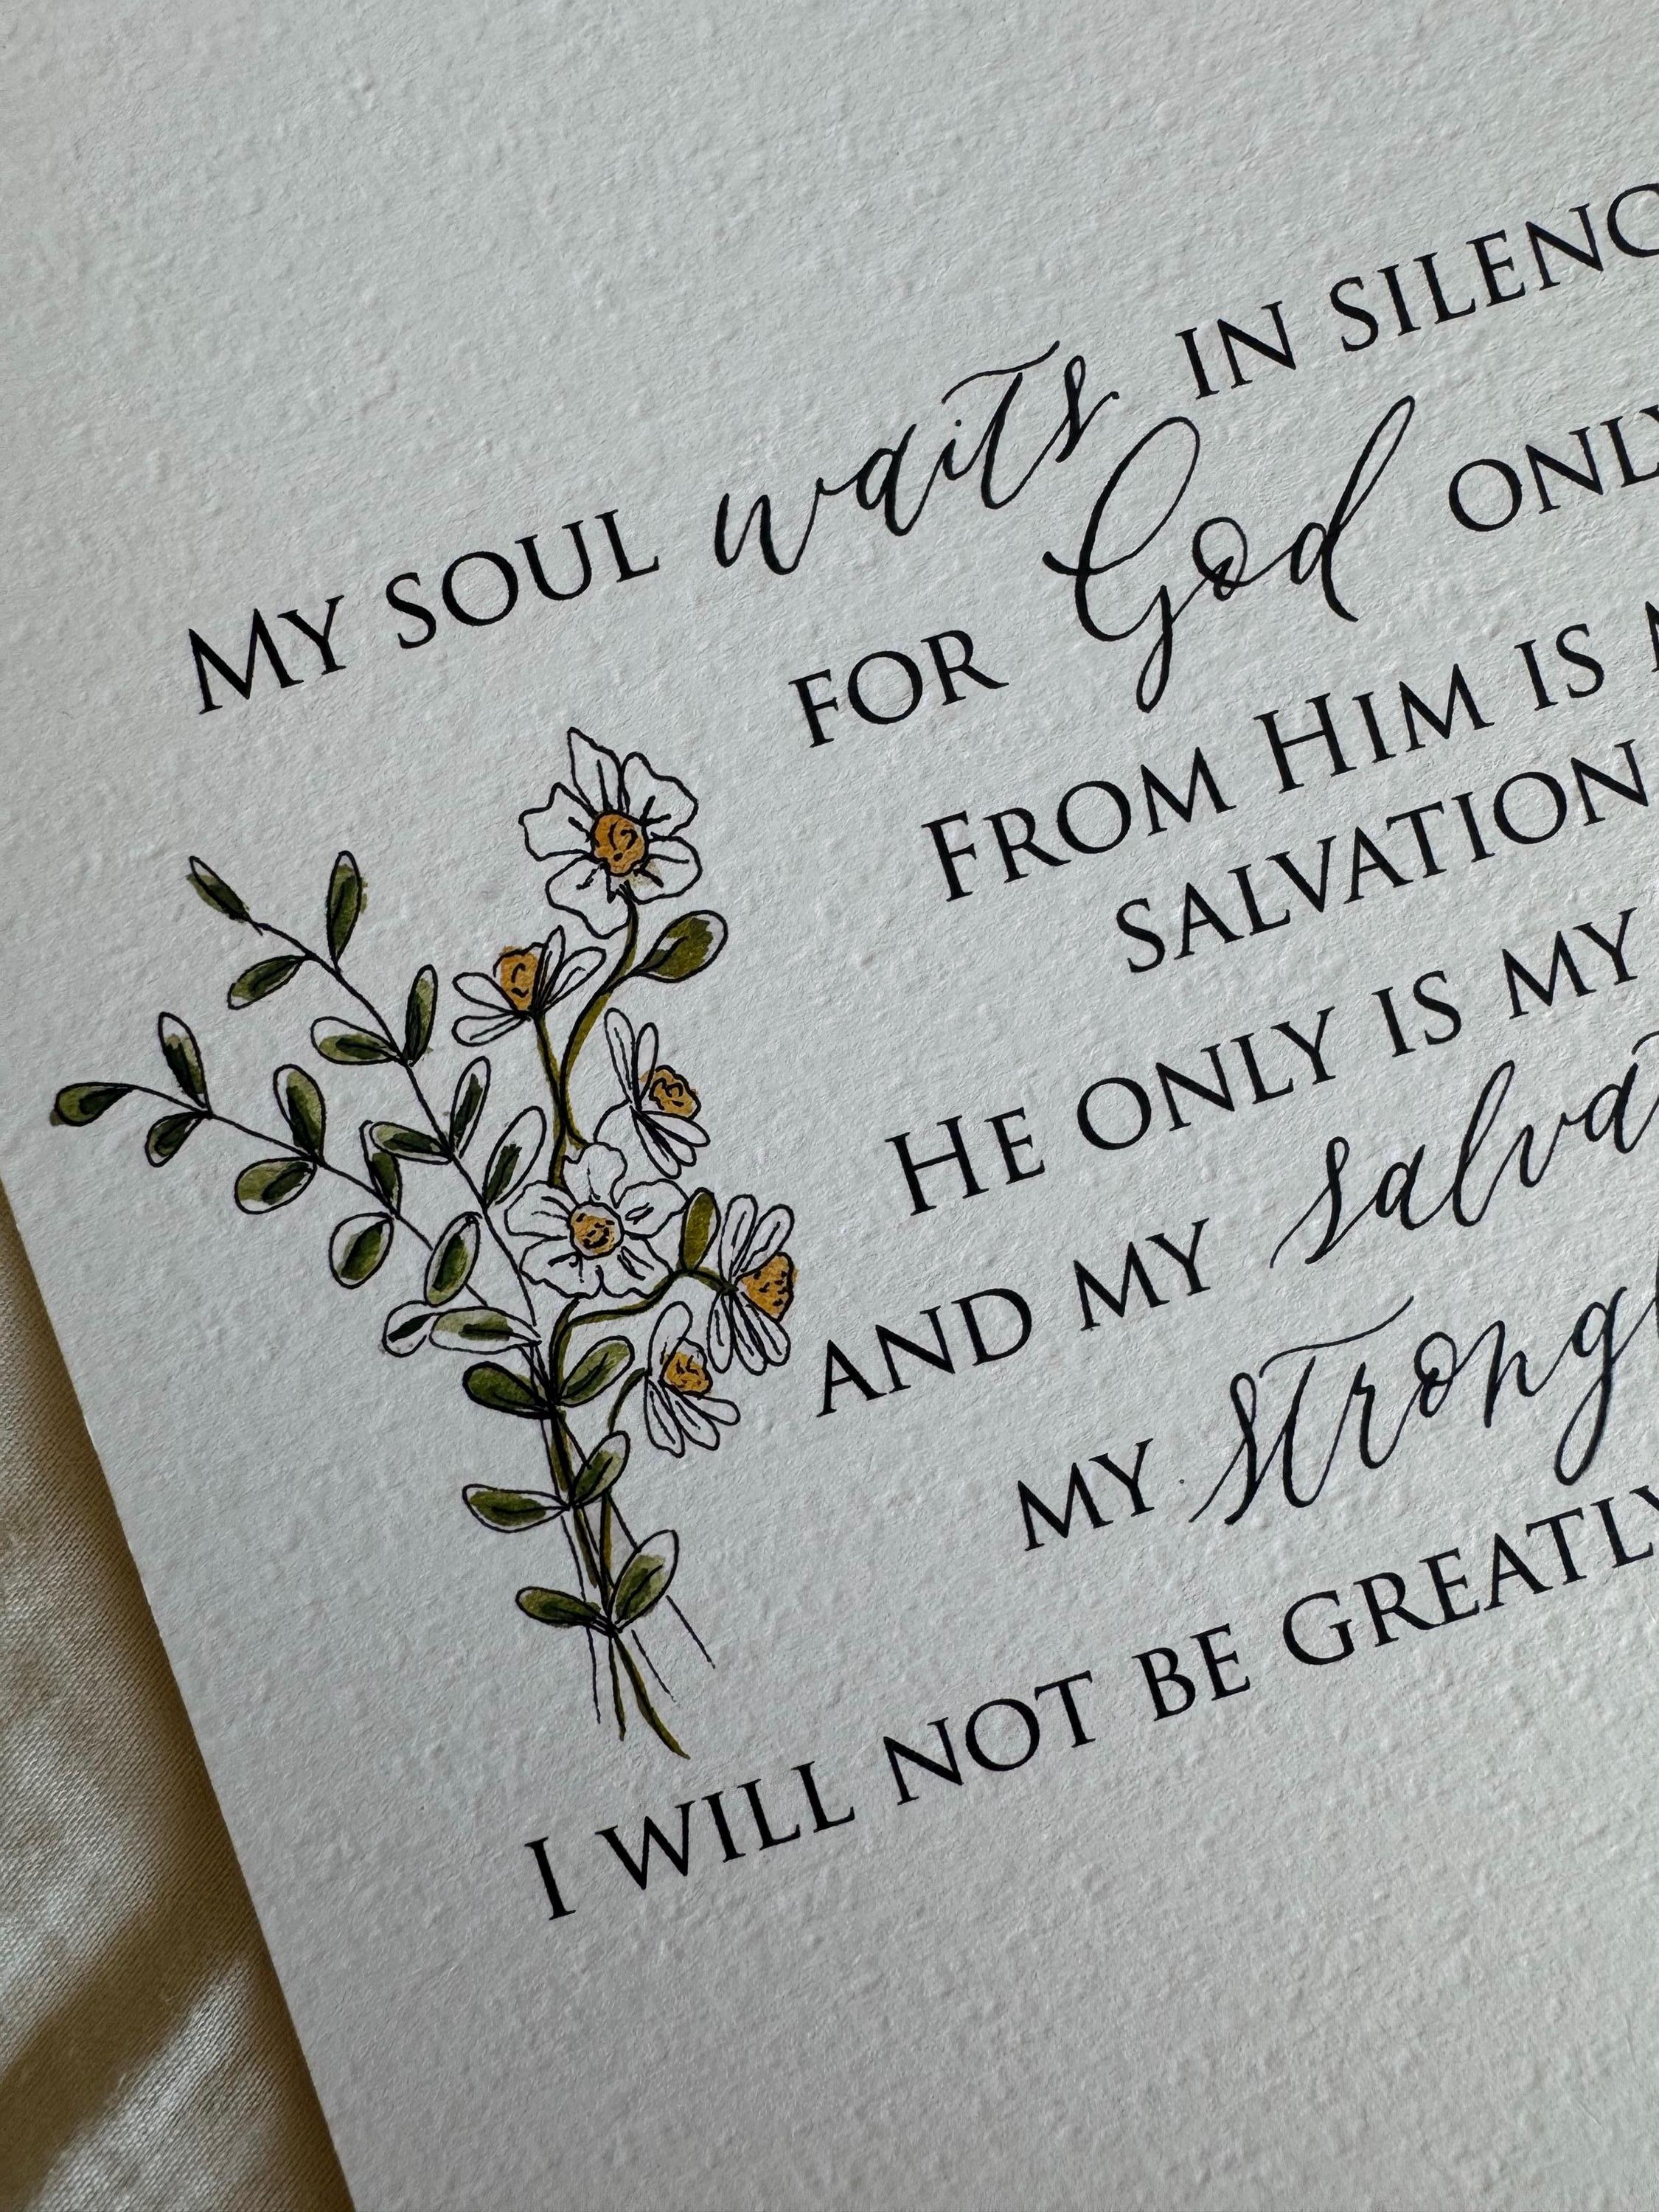 My soul waits in silenc
for God only
From Him is
salvation
He only is my
and my salvat
my strongh
I will not be greatly